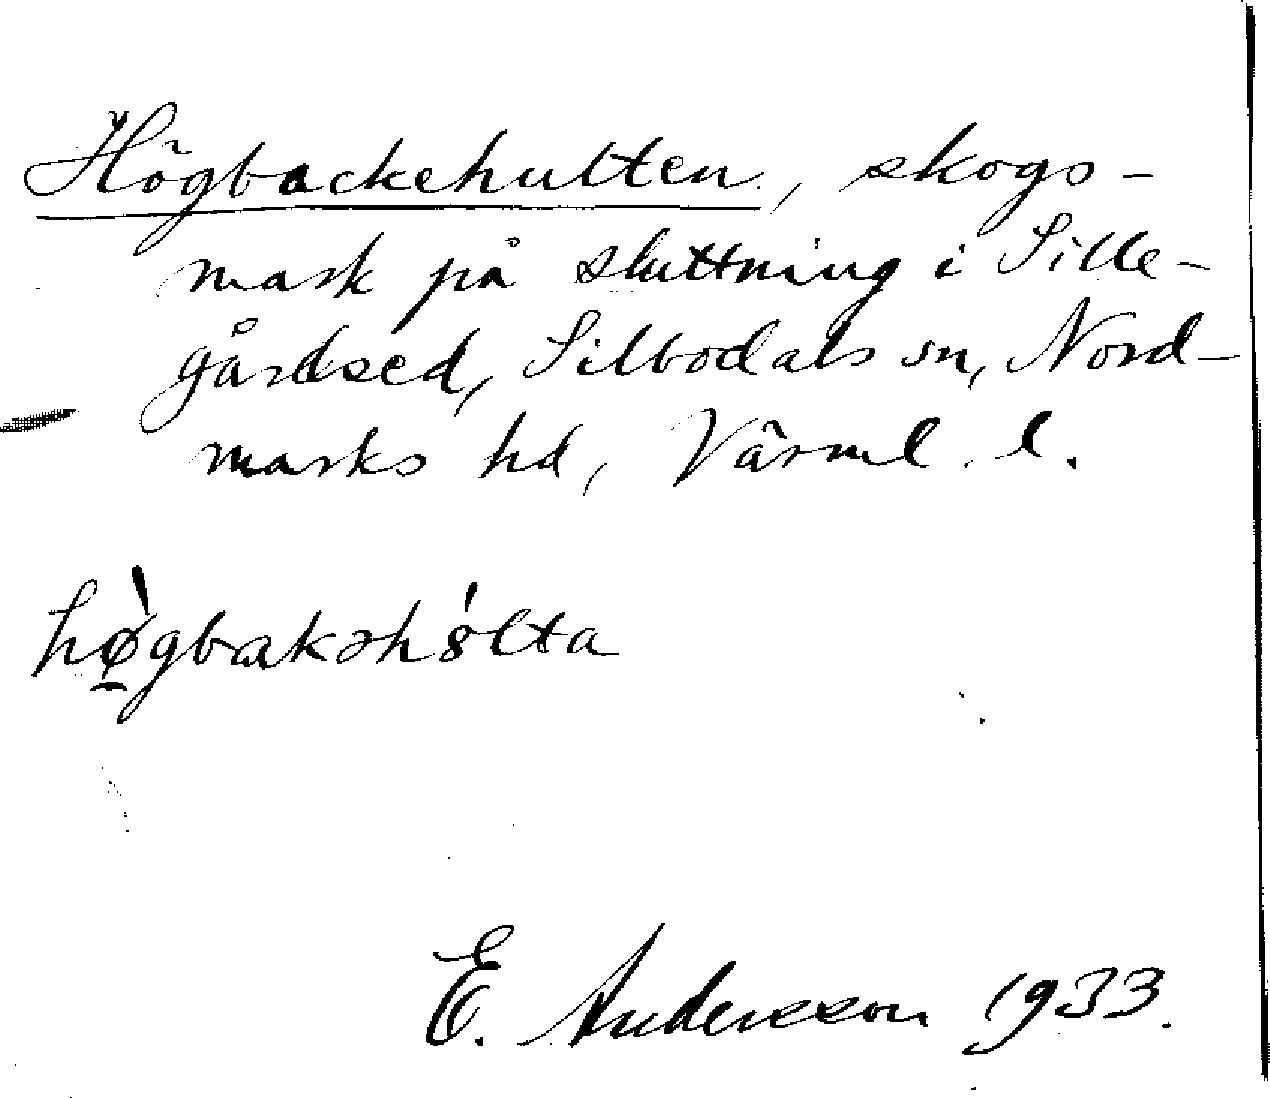 Högbackehulten, skogs-
mark på sluttning i Sille-
gårdsed, Silbodals sn, Nord-
marks hd, Värml. l.
hø̀gbakəhólta
E. Andersson 1933.